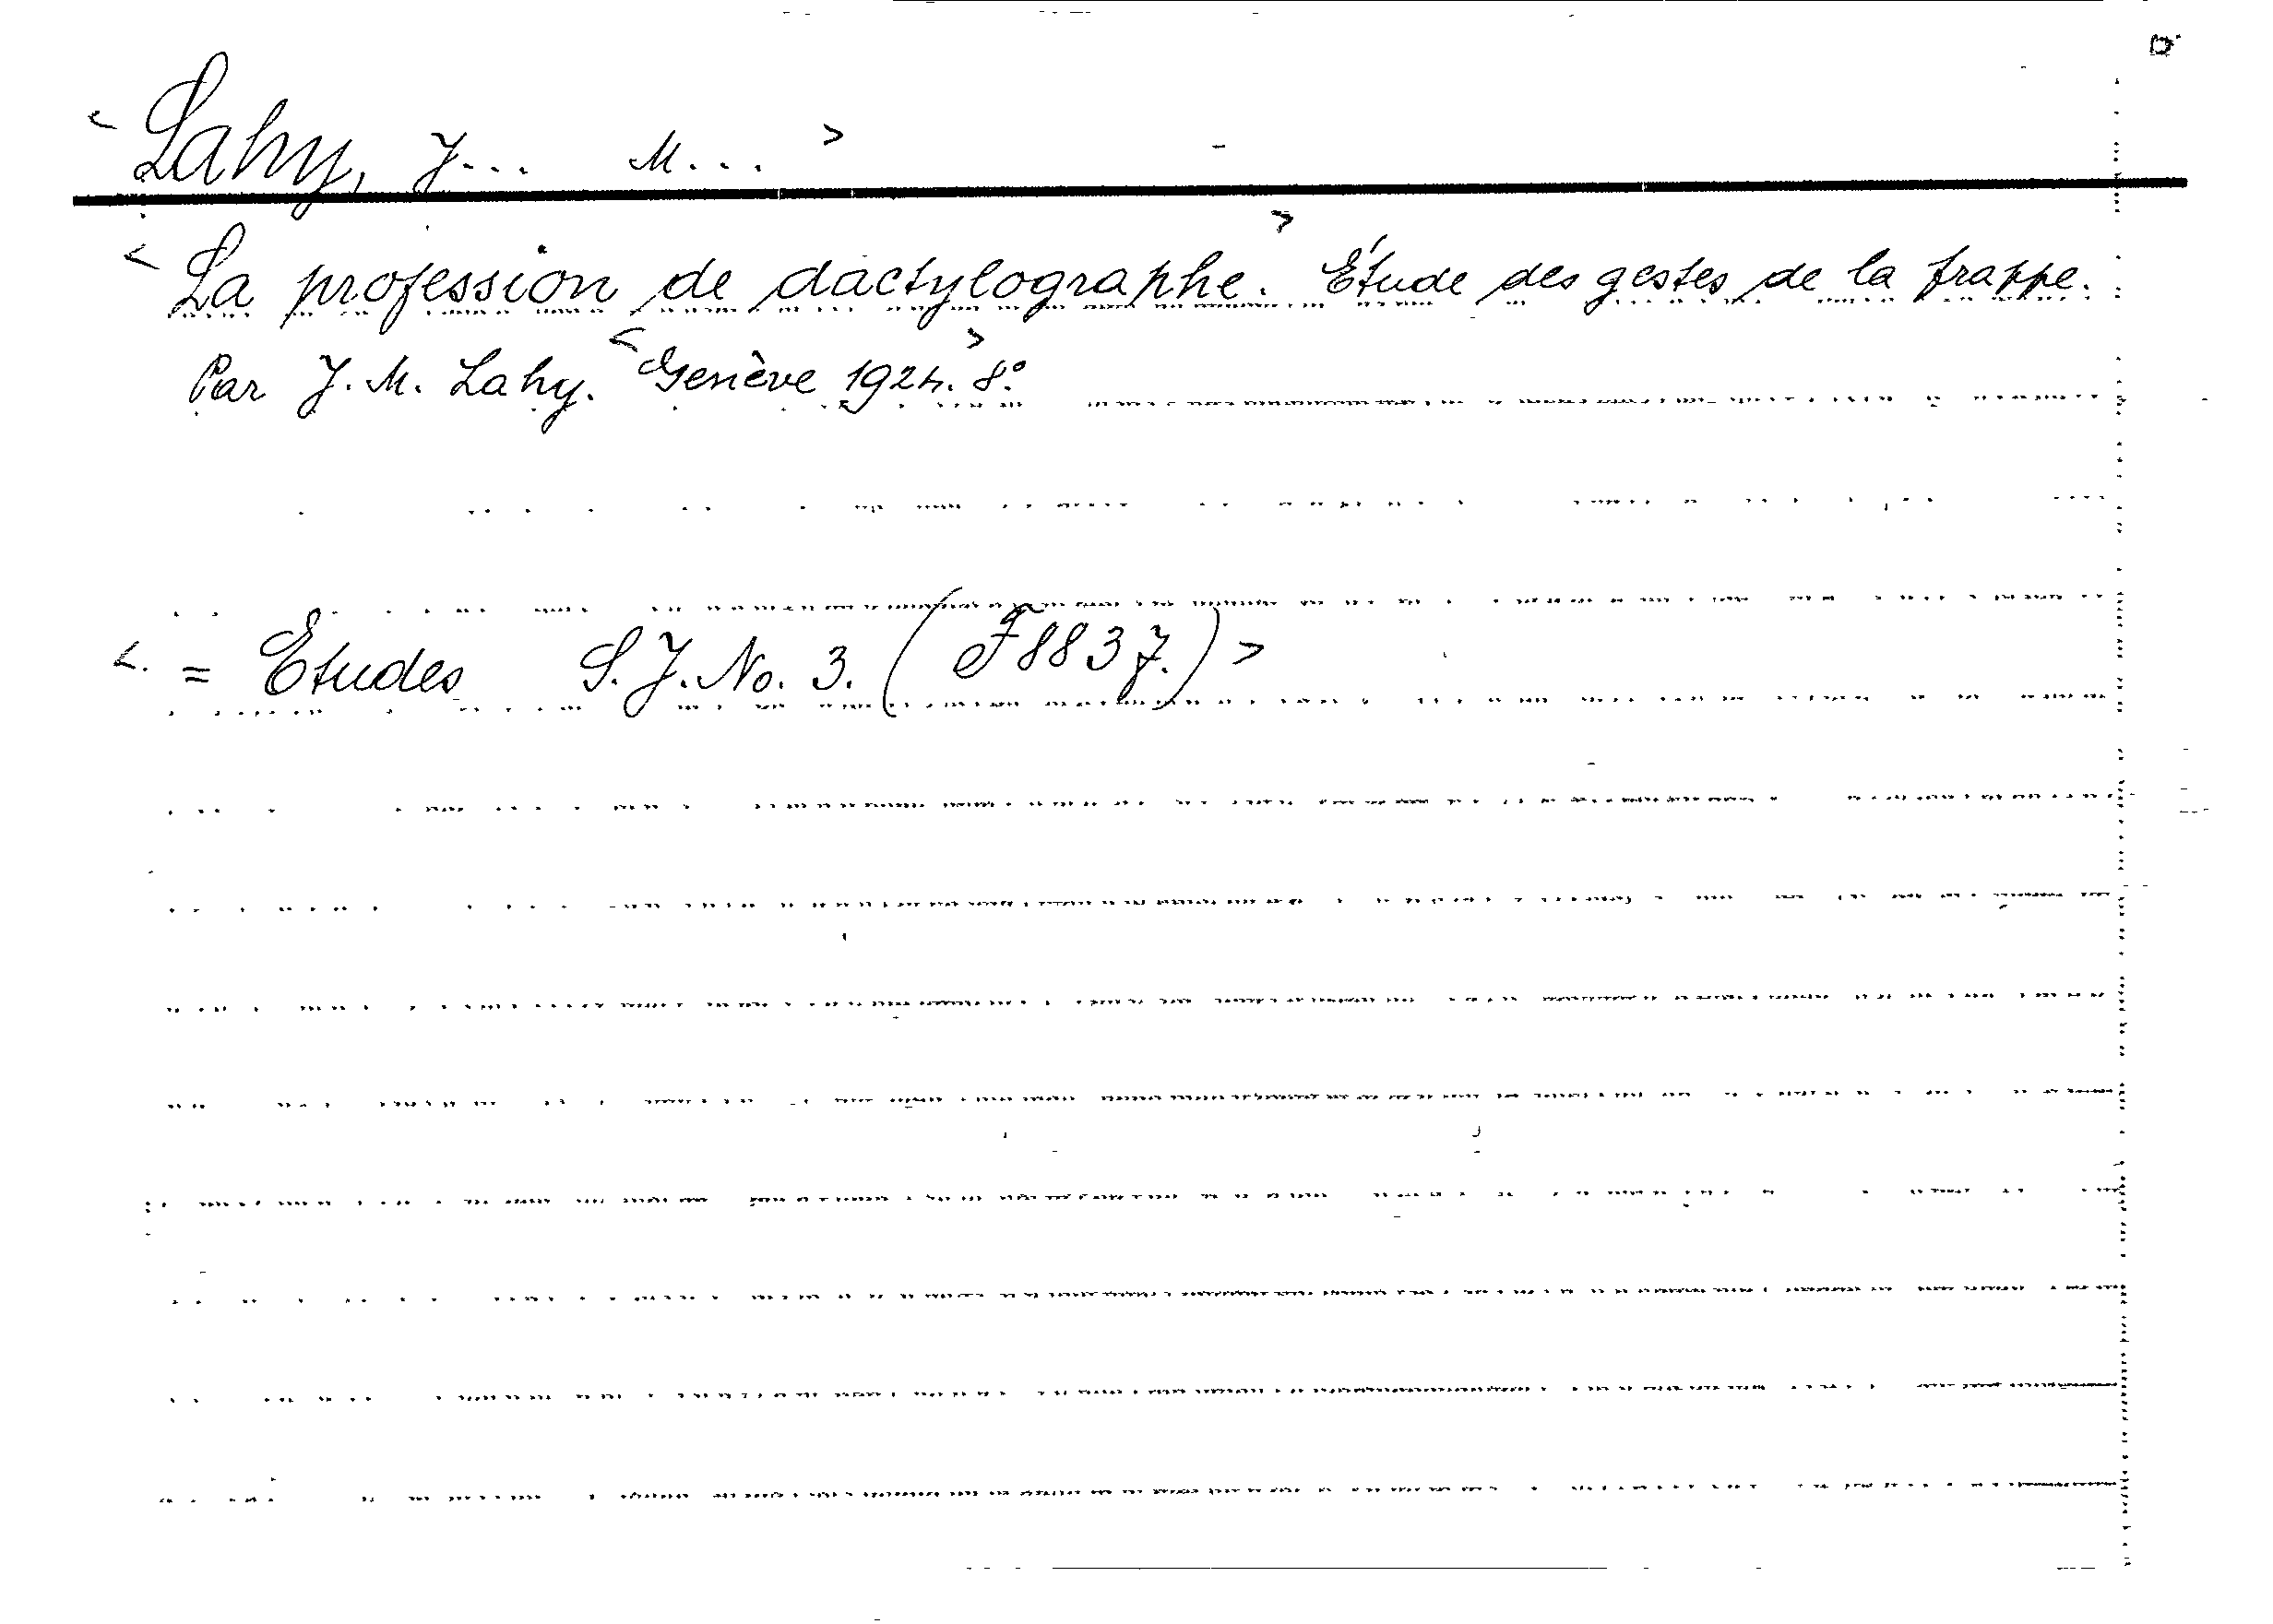 <Lahy, J... M...>
<La profession de dactylographe.> Étude des gestes de la frappe.
Par J. M. Lahy. <Genève 1924.> 8°.
<. = Etudes S. J. No. 3. (F8837.)>